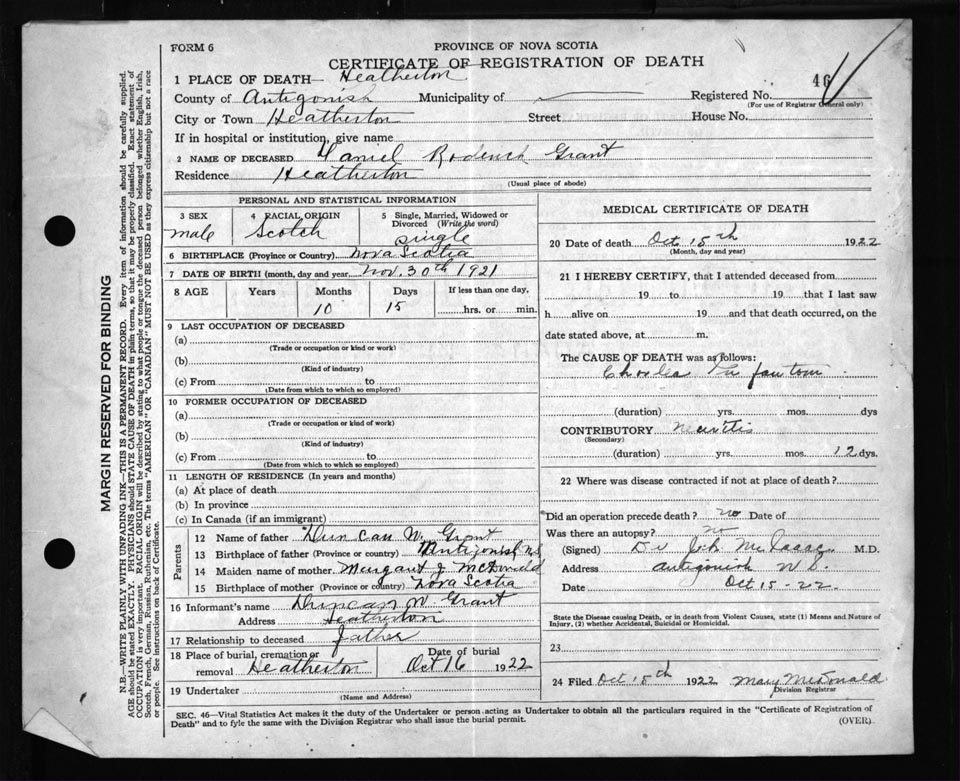 FORM 6
PROVINCE OF NOVA SCOTIA
CERTIFICATE OF REGISTRATION OF DEATH
1 PLACE OF DEATH— Heatherton
46
County of Antigonish Municipality of Registered No.
(For use of Registrar General only)
City or Town Heatherton Street House No.
If in hospital or institution, give name
2 NAME OF DECEASED Daniel Roderick Grant
Residence Heatherton
(Usual place of abode)
PERSONAL AND STATISTICAL INFORMATION
3 SEX male
4 RACIAL ORIGIN Scotch
5 Single, Married, Widowed or Divorced (Write the word) single
6 BIRTHPLACE (Province or Country) Nova Scotia
7 DATE OF BIRTH (month, day and year) Nov. 30th 1921
8 AGE Years Months Days If less than one day,
10 15 hrs. or min.
9 LAST OCCUPATION OF DECEASED
(a)
(Trade or occupation or kind or work)
(b)
(Kind of industry)
(c) From to
(Date from which to which so employed)
10 FORMER OCCUPATION OF DECEASED
(a)
(Trade or occupation or kind of work)
(b)
(Kind of industry)
(c) From to
(Date from which to which so employed)
11 LENGTH OF RESIDENCE (In years and months)
(a) At place of death
(b) In province
(c) In Canada (if an immigrant)
Parents
12 Name of father Duncan W. Grant
13 Birthplace of father (Province or country) Antigonish N.S
14 Maiden name of mother Margaret J. McDonald
15 Birthplace of mother (Province or country) Nova Scotia
16 Informant's name Duncan W Grant
Address Heatherton
17 Relationship to deceased father
18 Place of burial, cremation or removal Heatherton
Date of burial Oct 16 1922
19 Undertaker
(Name and Address)
MEDICAL CERTIFICATE OF DEATH
20 Date of death Oct 15th 1922
(Month, day and year)
21 I HEREBY CERTIFY, that I attended deceased from
19 to 19 that I last saw
h alive on 19 and that death occurred, on the
date stated above, at m.
The CAUSE OF DEATH was as follows:
(duration) yrs. mos. dys
CONTRIBUTORY
(Secondary)
(duration) yrs. mos. 12 dys.
22 Where was disease contracted if not at place of death?
Did an operation precede death? no Date of
Was there an autopsy? no
(Signed) Dr Jo. McIsaac M.D.
Address Antigonish N.S.
Date Oct 15-22
State the Disease causing Death, or in death from Violent Causes, state (1) Means and Nature of
Injury, (2) whether Accidental, Suicidal or Homicidal.
23
24 Filed Oct 15th 1922 Mary McDonald
Division Registrar
SEC. 46—Vital Statistics Act makes it the duty of the Undertaker or person acting as Undertaker to obtain all the particulars required in the "Certificate of Registration of
Death" and to fyle the same with the Division Registrar who shall issue the burial permit.
(OVER)
MARGIN RESERVED FOR BINDING
N.B.—WRITE PLAINLY WITH UNFADING INK—THIS IS A PERMANENT RECORD. Every item of information should be carefully supplied.
AGE should be stated EXACTLY. PHYSICIANS should STATE CAUSE OF DEATH in plain terms, so that it may be properly classified. Exact statement of
OCCUPATION is very important. RACIAL ORIGIN will be described by stating to what people or tongue the deceased person belonged whether English, Irish,
Scotch, French, German, Russian, Ruthenian, etc. The terms "AMERICAN" OR "CANADIAN" MUST NOT BE USED as they express citizenship but not a race
or people. See instructions on back of Certificate.